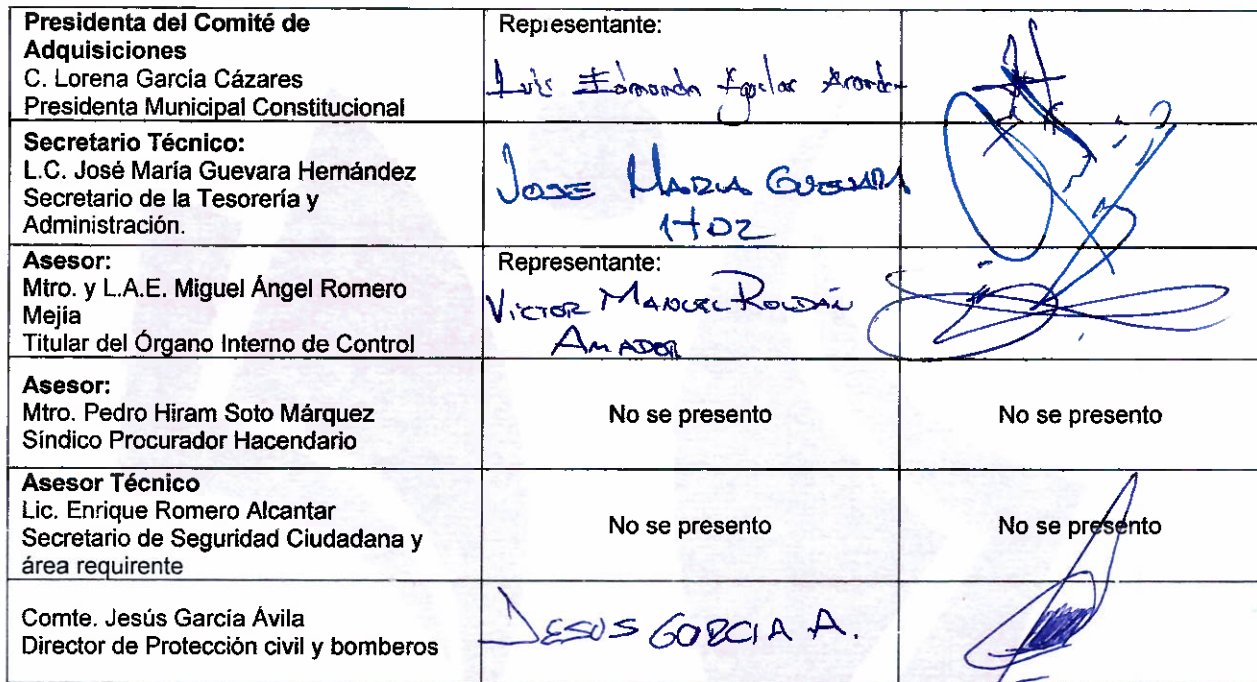 Presidenta del Comité de
Adquisiciones
C. Lorena García Cázares
Presidenta Municipal Constitucional
Representante:
Luis Edmundo Aguilar
Secretario Técnico:
L.C. José María Guevara Hernández
Secretario de la Tesorería y
Administración.
JOSE MARIA GUEVARA
HDZ
Asesor:
Mtro. y L.A.E. Miguel Ángel Romero
Mejía
Titular del Órgano Interno de Control
Representante:
VICTOR MANUEL ROLDÁN
AMADOR
Asesor:
Mtro. Pedro Hiram Soto Márquez
Síndico Procurador Hacendario
No se presento
No se presento
Asesor Técnico
Lic. Enrique Romero Alcantar
Secretario de Seguridad Ciudadana y
área requirente
No se presento
No se presento
Comte. Jesús García Ávila
Director de Protección civil y bomberos
JESUS GARCIA A.